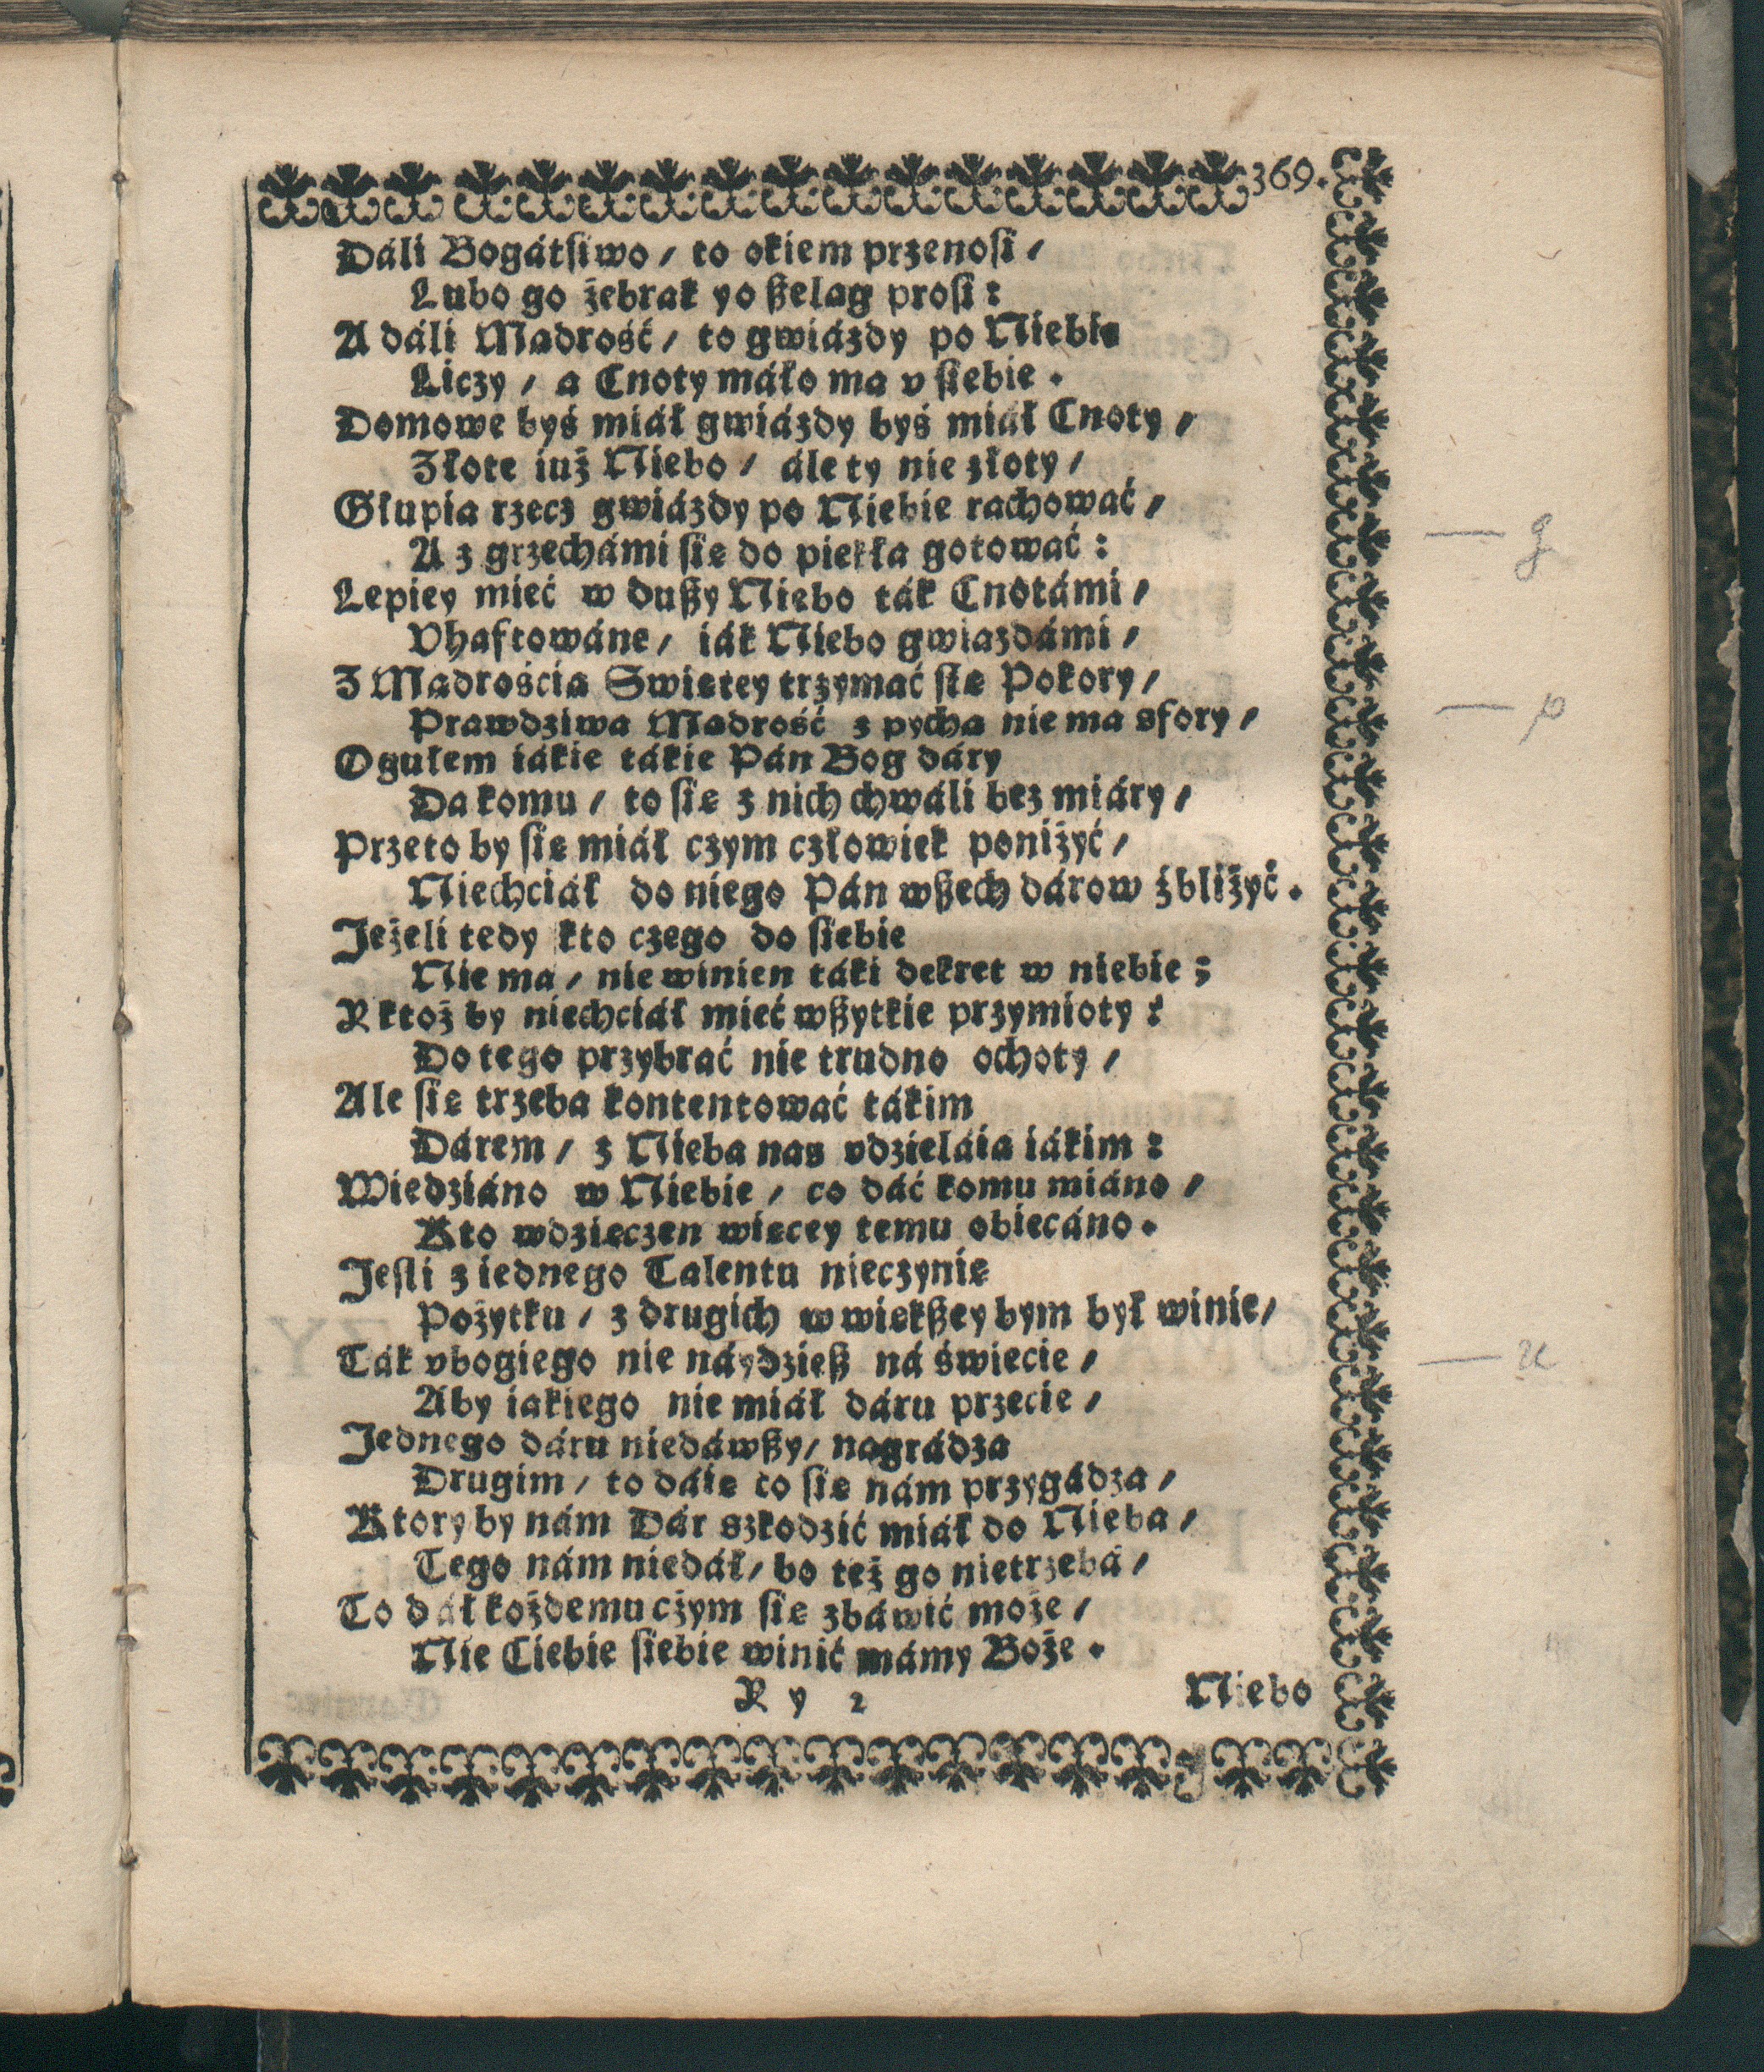 369.
Dáli Bogátſiwo / to okiem przenoſi /
Lubo go żebrak yo ßeląg proſi:
A dáli Mądrość / to gwiázdy po Niebie
Liczy / a Cnoty máło ma v ſiebie.
Domowe byś miáł gwiázdy byś miáł Cnoty /
Złote iuż Niebo / ále ty nie złoty /
Głupia rzecz gwiázdy po Niebie ráchowáć /
A z grzechámi ſię do piekła gotowáć:
Lepiey mieć w dußy Niebo ták Cnotámi /
Vháftowáne / iák Niebo gwiazdámi /
Z Mądrośćią Swiętey trzymáć ſię Pokory /
Prawdziwa Mądrość z pychą nie ma sfory /
Ogułem iákie tákie Pán Bog dáry
Da komu / to ſię z nich chwáli bez miáry /
Przeto by ſię miáł czym człowiek poniżyć /
Niechciáł do niego Pán wßech dárow źbliżyć.
Jeżeli tedy kto czego do ſiebie
Nie ma / nie winien táki dekret w niebie;
R ktoż by niechciáł mieć wßytkie przymioty:
Do tego przybráć nie trudno ochoty /
Ale ſię trzeba kontentowáć tákim
Dárem / z Nieba nas vdzieláią iákim:
Wiedziáno w Niebie / co dáć komu miáno /
Kto wdzięczen więcey temu obiecáno.
Jeſli z iednego Talentu nieczynię
Pożytku / z drugich w więkßey bym był winie /
Ták vbogiego nie náydzieß ná świecie /
Aby iakiego nie miáł dáru przecie /
Jednego dáru niedáwßy / nagrádza
Drugim / to dáie co ſię nám przygádza /
Ktory by nám Dár szkodzić miáł do Nieba /
Tego nám niedáł / bo też go nietrzebá /
To dáł każdemu czym ſię zbáwić może /
Nie Ciebie ſiebie winić mámy Boże.
R y 2
Niebo
— g
— p
— u